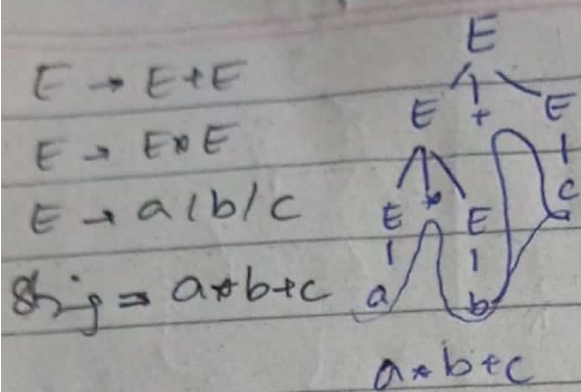 E → E+E
E → E*E
E → a/b/c
String = a*b+c
E
E + E
E * E c
a b
a*b+c